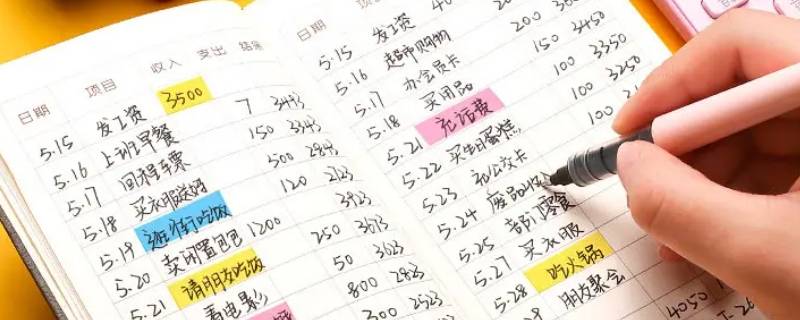 日期 项目 收入 支出 结余
5.15 发工资 3500
5.16 上班早餐 7 3493
5.17 回程车票 150 3343
5.18 买衣服送妈 500 2843
5.19 逛街吃饭 120 2723
5.20 卖闲置包包 1200 3923
5.21 请朋友吃饭 250 3673
看电影 50 3623
800 2823
300 2523
日期
5.15 发工资
5.16 超市购物 200
5.17 办会员卡 200 3450
5.18 买用品 150 3350
5.21 充话费 100 3250
5.22 买生日蛋糕 100
5.23 充公交卡
5.24 废品
5.25 部门零食
5.27 买衣服
5.28 吃火锅
朋友聚会
4050